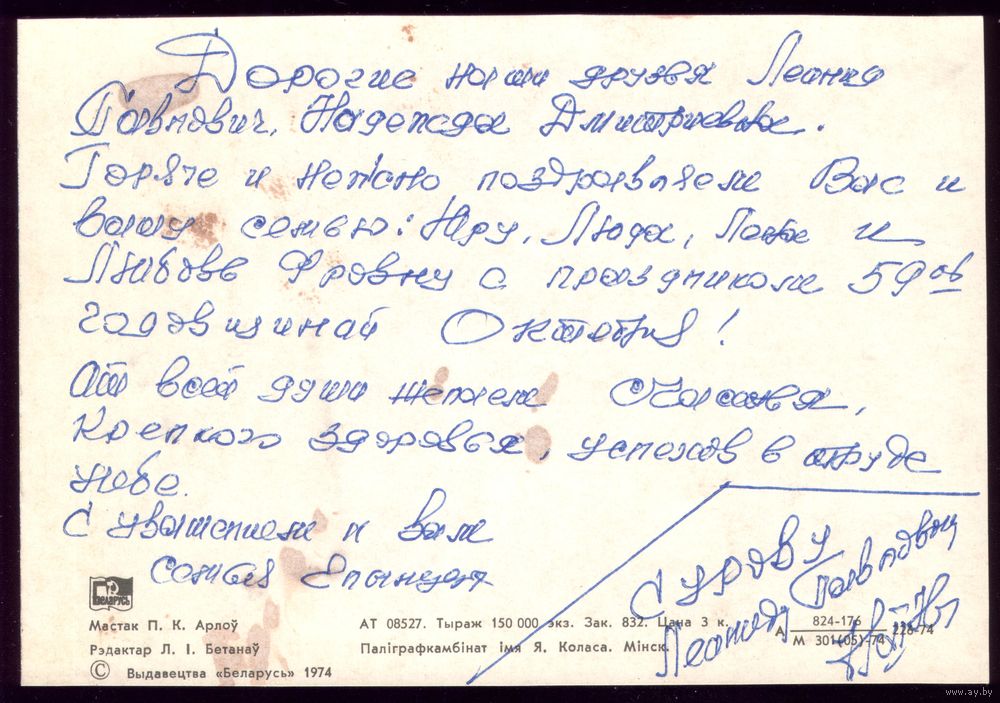 Дорогие наши друзья Леонид
Павлович, Надежда Дмитриевна.
Горяче и нежно поздравляем Вас и
вашу семью: Иру, Люда, и
Любовь с праздником 59ов
годовщинай Октября!
От всей души желаем счастья,
Крепкого здоровья, успехов в труде
учёбе.
С уважением к вам
семья
Сурову
Леониду Павловичу
БЕЛАРУСЬ
Мастак П. К. Арлоў
Рэдактар Л. І. Бетанаў
© Выдавецтва «Беларусь» 1974
АТ 08527. Тыраж 150 000 экз. Зак. 832. Цана 3 к.
Паліграфкамбінат імя Я. Коласа. Мінск.
А 824-176
М 301(05)-74 226-74
www.ay.by